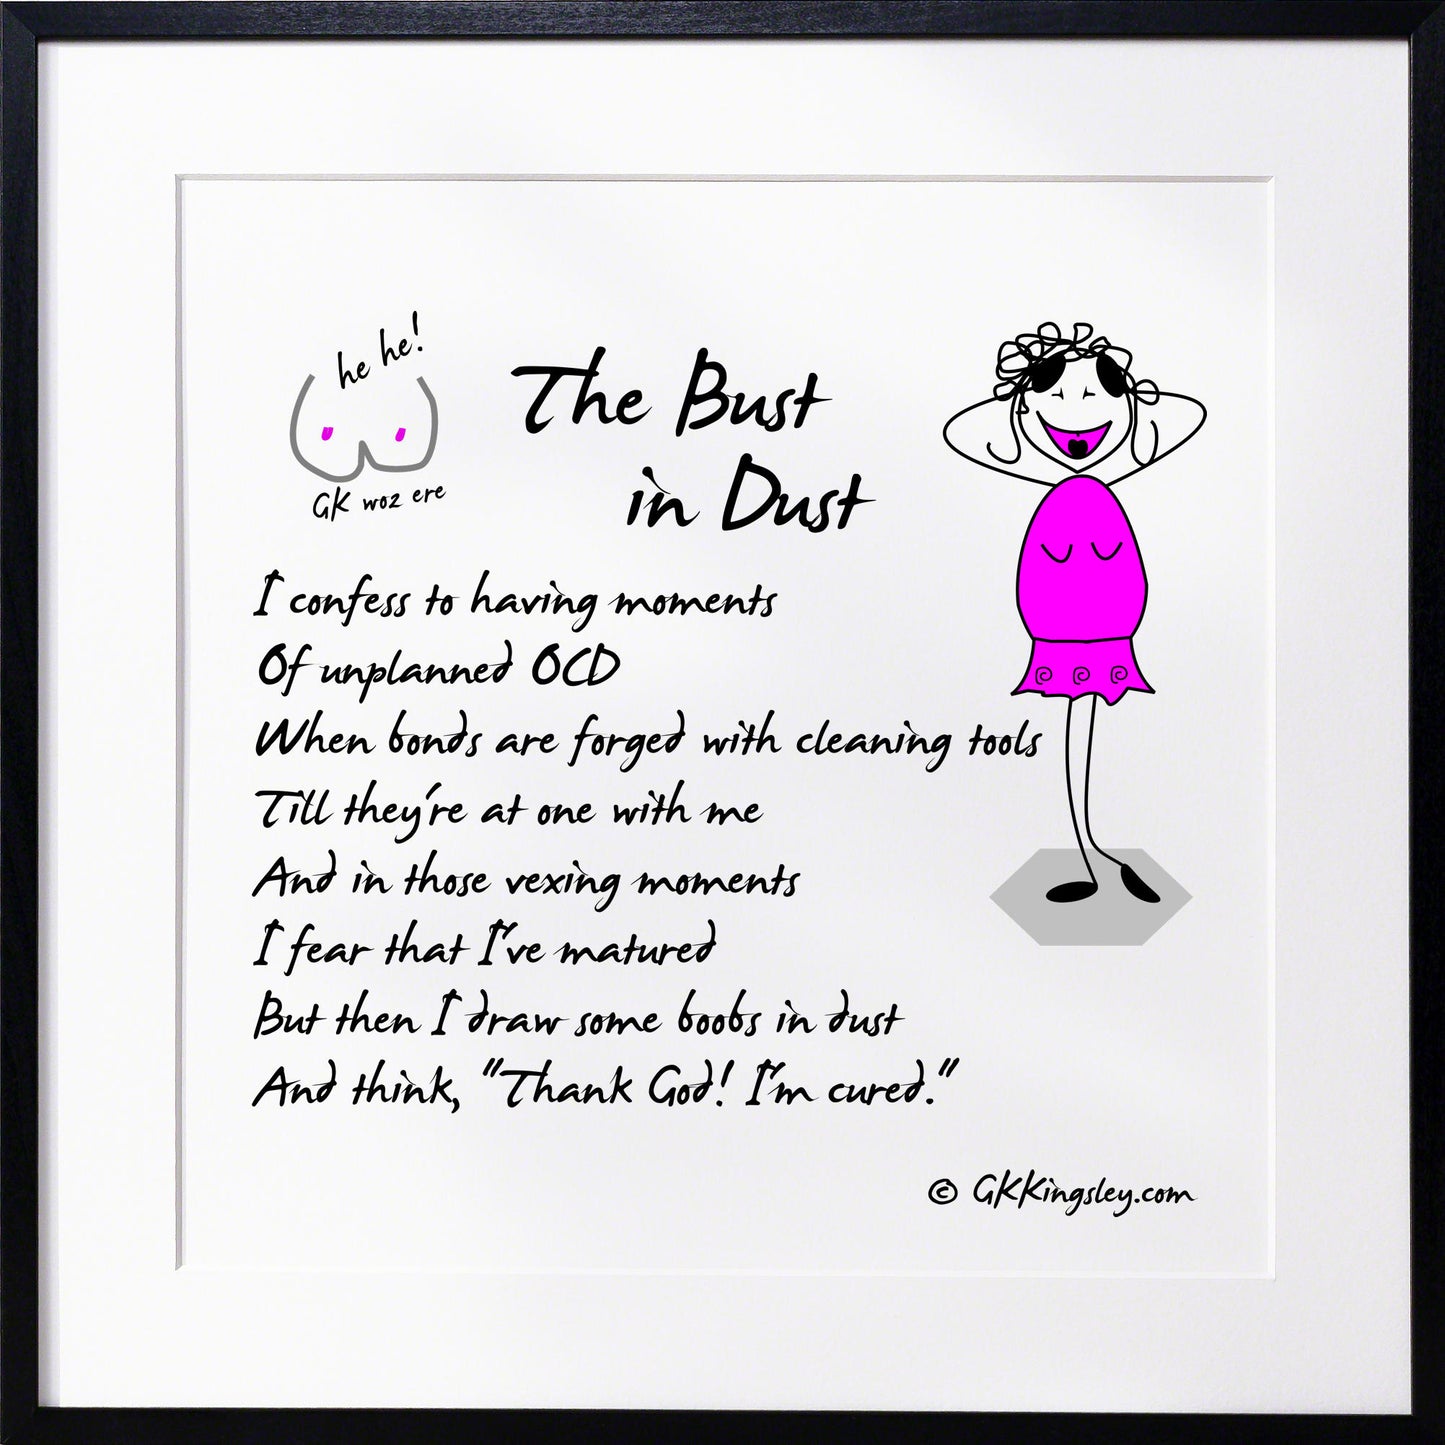 he he!
GK woz ere
The Bust
in Dust
I confess to having moments
Of unplanned OCD
When bonds are forged with cleaning tools
Till they're at one with me
And in those vexing moments
I fear that I've matured
But then I draw some boobs in dust
And think, "Thank God! I'm cured."
© GKKingsley.com